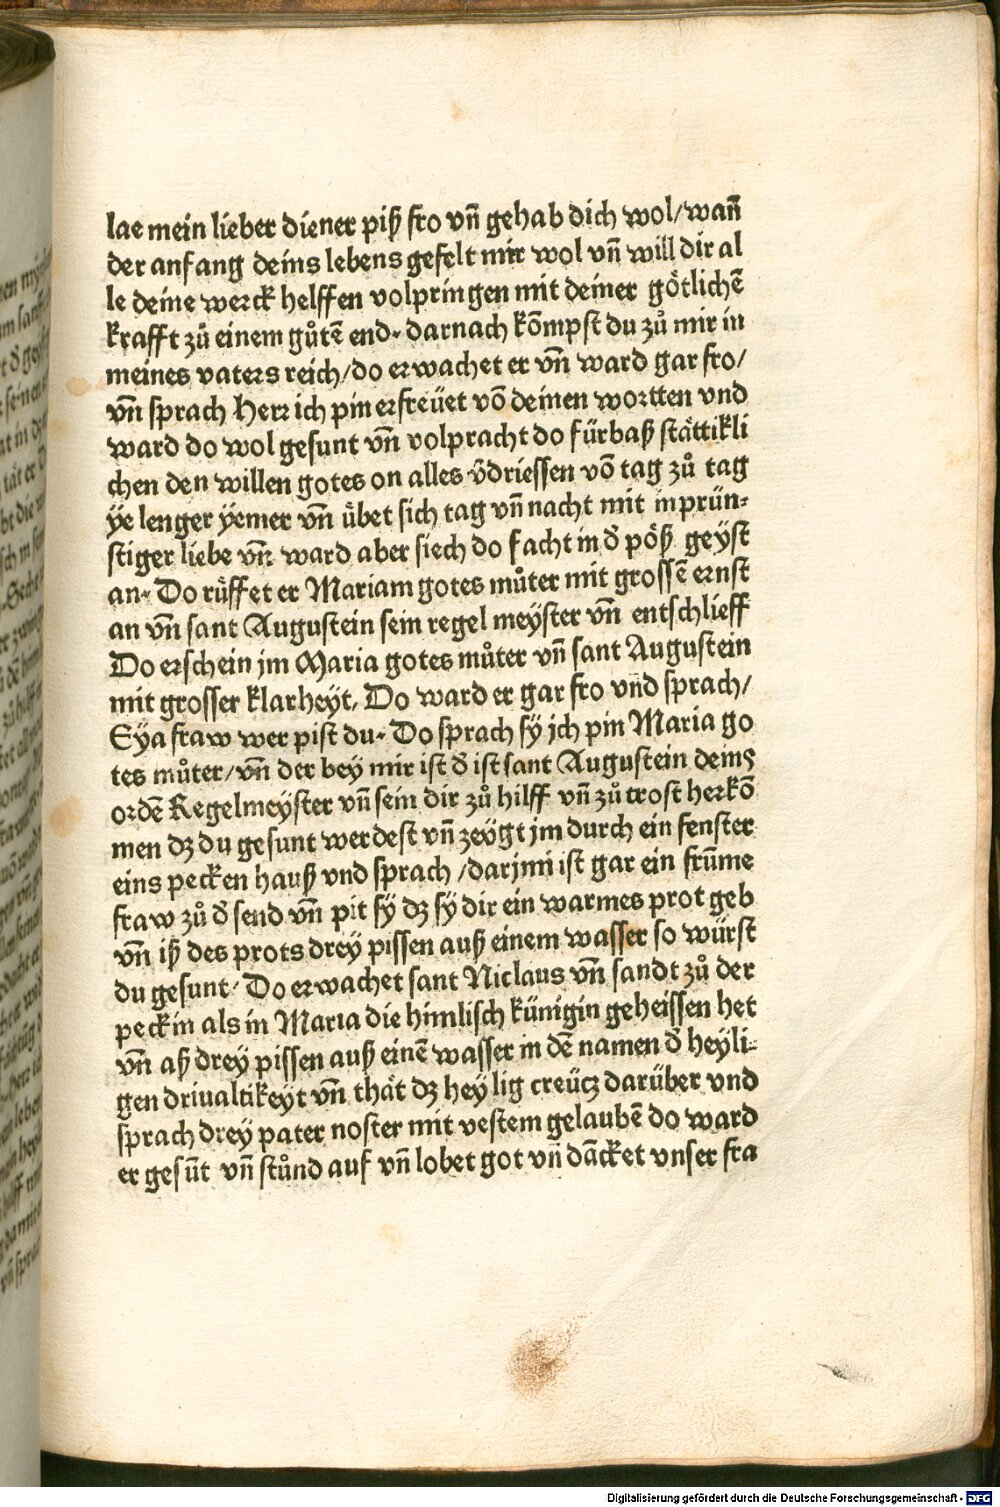 lae mein lieber diener piß fro vn̄ gehab dich wol/wañ
der anfang deins lebens gefelt mir wol vn̄ will dir al
le deine werck helffen volpringen mit deiner götlichē
krafft zů einem gůtē end· darnach kōmpst du zů mir in
meines vaters reich/do erwachet er vn̄ ward gar fro/
vn̄ sprach Herr ich pin erfreüet vō deinen wortten vnd
ward do wol gesunt vn̄ volpracht do fürbaß stättikli
chen den willen gotes on alles v̄driessen vō tag zů tag
ye lenger yemer vn̄ übet sich tag vn̄ nacht mit inprün⸗
stiger liebe vn̄ ward aber siech do facht in d̄ pöß geyst
an· Do rüffet er Mariam gotes můter mit grossē ernst
an vn̄ sant Augustein sein regel meyster vn̄ entschlieff
Do erschein jm Maria gotes můter vn̄ sant Augustein
mit grosser klarheyt, Do ward er gar fro vnd sprach/
Eya fraw wer pist du· Do sprach sy jch pin Maria go
tes můter/vn̄ der bey mir ist d̄ ist sant Augustein deins
ordē Regelmeyster vn̄ sein dir zů hilff vn̄ zů trost herkō
men dz du gesunt werdest vn̄ zeygt jm durch ein fenster
eins pecken hauß vnd sprach /darjnn ist gar ein frūme
fraw zů d̄ send vn̄ pit sy dz sy dir ein warmes prot geb
vn̄ iß des prots drey pissen auß einem wasser so würst
du gesunt· Do erwachet sant Niclaus vn̄ sandt zů der
peckin als in Maria die himlisch künigin geheissen het
vn̄ aß drey pissen auß einē wasser in dē namen d̄ heyli⸗
gen driualtikeyt vn̄ thät dz heylig creücz darüber vnd
sprach drey pater noster mit vestem gelaubē do ward
er gesūt vn̄ stůnd auf vn̄ lobet got vn̄ dācket vnser fra
Digitalisierung gefördert durch die Deutsche Forschungsgemeinschaft - DFG